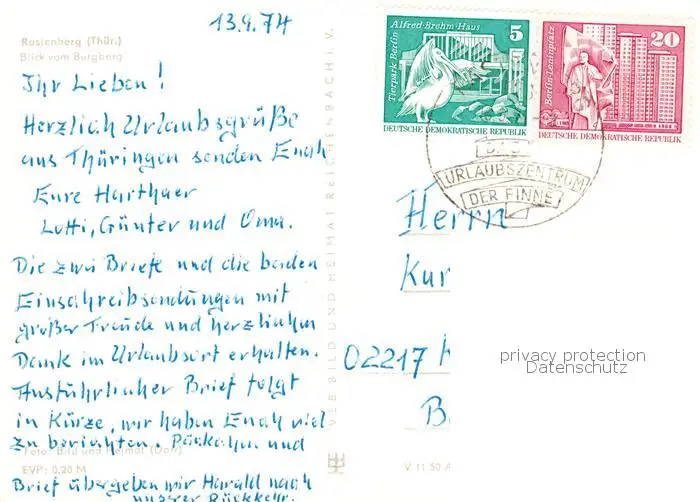 13.9.74
Rastenberg (Thür.)
Blick vom Burgberg
Ihr Lieben!
Herzlich Urlaubsgrüße
aus Thüringen senden Euch
Eure Harthaer
Lotti, Günter und Oma.
Die zwei Briefe und die beiden
Einschreibsendungen mit
großer Freude und herzlichem
Dank im Urlaubsort erhalten.
Ausführlicher Brief folgt
in Kürze, wir haben Euch viel
zu berichten. Päckchen und
Foto: Bild und Heimat (Dorr)
EVP: 0,20 M
Brief übergeben wir Harald nach
unserer Rückkehr.
VEB BILD UND HEIMAT REICHENBACH I. V.
Alfred-Brehm-Haus
5
Tierpark Berlin
DEUTSCHE DEMOKRATISCHE REPUBLIK
20
Berlin-Leninplatz
DEUTSCHE DEMOKRATISCHE REPUBLIK
URLAUBSZENTRUM
DER FINNE
Herrn
Kur
02217
B
V 11 50 A
privacy protection
Datenschutz